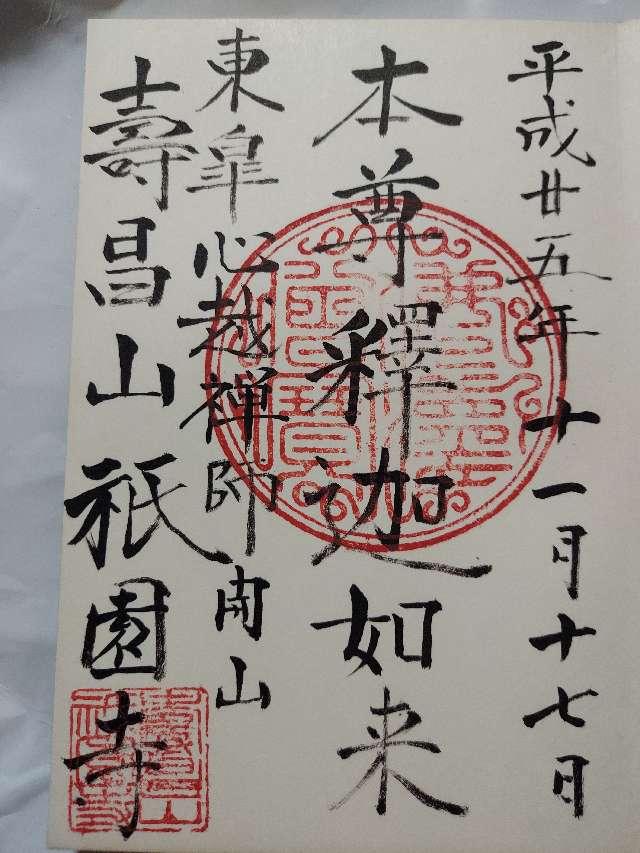 平成廿五年 十一月十七日
本尊釋迦如来
東皐心越禅師開山
壽昌山祇園寺